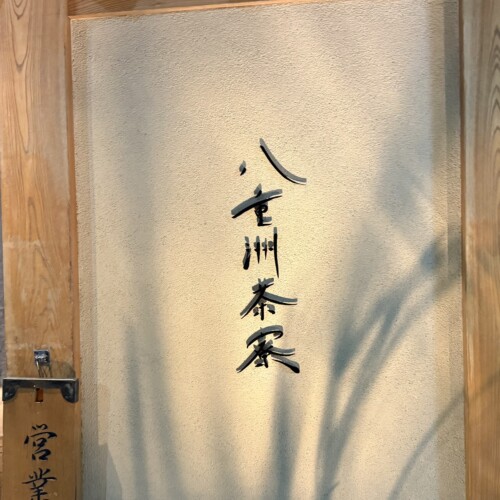 八重洲茶寮
営業